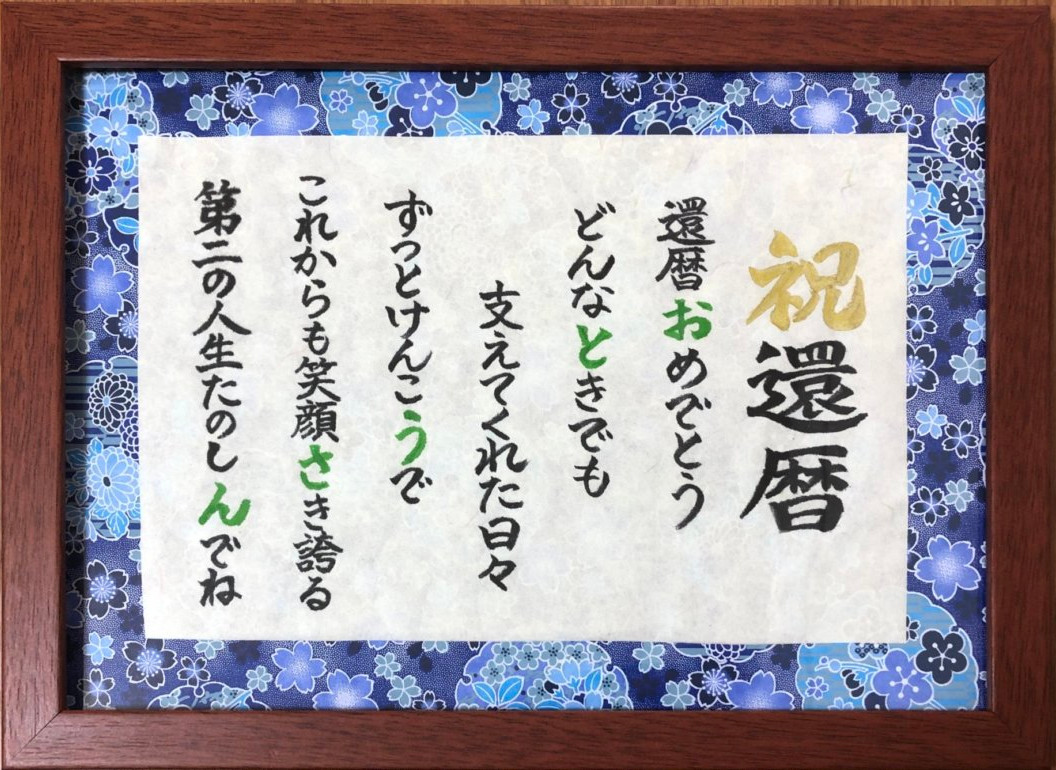 祝還暦
還暦おめでとう
どんなときでも
支えてくれた日々
ずっとけんこうで
これからも笑顔さき誇る
第二の人生たのしんでね